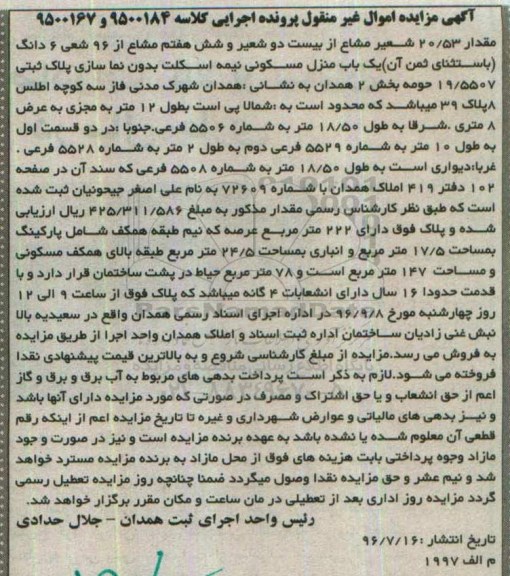 آگهی مزایده اموال غیر منقول پرونده اجرایی کلاسه ۹۵۰۰۱۸۴ و ۹۵۰۰۱۶۷
مقدار ۲۰/۵۳ شعیر مشاع از بیست دو شعیر و شش هفتم مشاع از ۹۶ شعی ۶ دانگ
(باستثنای ثمن آن)یک باب منزل مسکونی نیمه اسکلت بدون نما سازی پلاک ثبتی
۱۹/۵۵۰۷ حومه بخش ۲ همدان به نشانی :همدان شهرک مدنی فاز سه کوچه اطلس
۸پلاک ۳۹ میباشد که محدود است به :شمالا پی است بطول ۱۲ متر به مجزی به عرض
۸ متری .شرقا به طول ۱۸/۵۰ متر به شماره ۵۵۰۶ فرعی.جنوبا :در دو قسمت اول
به طول ۱۰ متر به شماره ۵۵۲۹ فرعی دوم به طول ۲ متر به شماره ۵۵۲۸ فرعی .
غربا:دیواری است به طول ۱۸/۵۰ متر به شماره ۵۵۰۸ فرعی که سند آن در صفحه
۱۰۲ دفتر ۴۱۹ املاک همدان با شماره ۷۲۶۰۹ به نام علی اصغر جیحونیان ثبت شده
است که طبق نظر کارشناس رسمی مقدار مذکور به مبلغ ۴۲۵/۳۱۱/۵۸۶ ریال ارزیابی
شده و پلاک فوق دارای ۲۲۲ متر مربع عرصه که نیم طبقه همکف شامل پارکینگ
بمساحت ۱۷/۵ متر مربع و انباری بمساحت ۲۴/۵ متر مربع طبقه بالای همکف مسکونی
و مساحت ۱۴۷ متر مربع است و ۷۸ متر مربع حیاط در پشت ساختمان قرار دارد و با
قدمت حدودا ۱۶ سال دارای انشعابات ۴ گانه میباشد که پلاک فوق از ساعت ۹ الی ۱۲
روز چهارشنبه مورخ ۹۶/۹/۸ در اداره اجرای اسناد رسمی همدان واقع در سعیدیه بالا
نبش غنی زادیان ساختمان اداره ثبت اسناد و املاک همدان واحد اجرا از طریق مزایده
به فروش می رسد.مزایده از مبلغ کارشناسی شروع و به بالاترین قیمت پیشنهادی نقدا
فروخته می شود.لازم به ذکر است پرداخت بدهی های مربوط به آب برق و برق و گاز
اعم از حق انشعاب و یا حق اشتراک و مصرف در صورتی که مورد مزایده دارای آنها باشد
و نیز بدهی های مالیاتی و عوارض شهرداری و غیره تا تاریخ مزایده اعم از اینکه رقم
قطعی آن معلوم شده یا نشده باشد به عهده برنده مزایده است و نیز در صورت و جود
مازاد وجوه پرداختی بابت هزینه های فوق از محل مازاد به برنده مزایده مسترد خواهد
شد و نیم عشر و حق مزایده نقدا وصول میگردد ضمنا چنانچه روز مزایده تعطیل رسمی
گردد مزایده روز اداری بعد از تعطیلی در مان ساعت و مکان مقرر برگزار خواهد شد.
رئیس واحد اجرای ثبت همدان – جلال حدادی
تاریخ انتشار :۹۶/۷/۱۶
م الف ۱۹۹۷